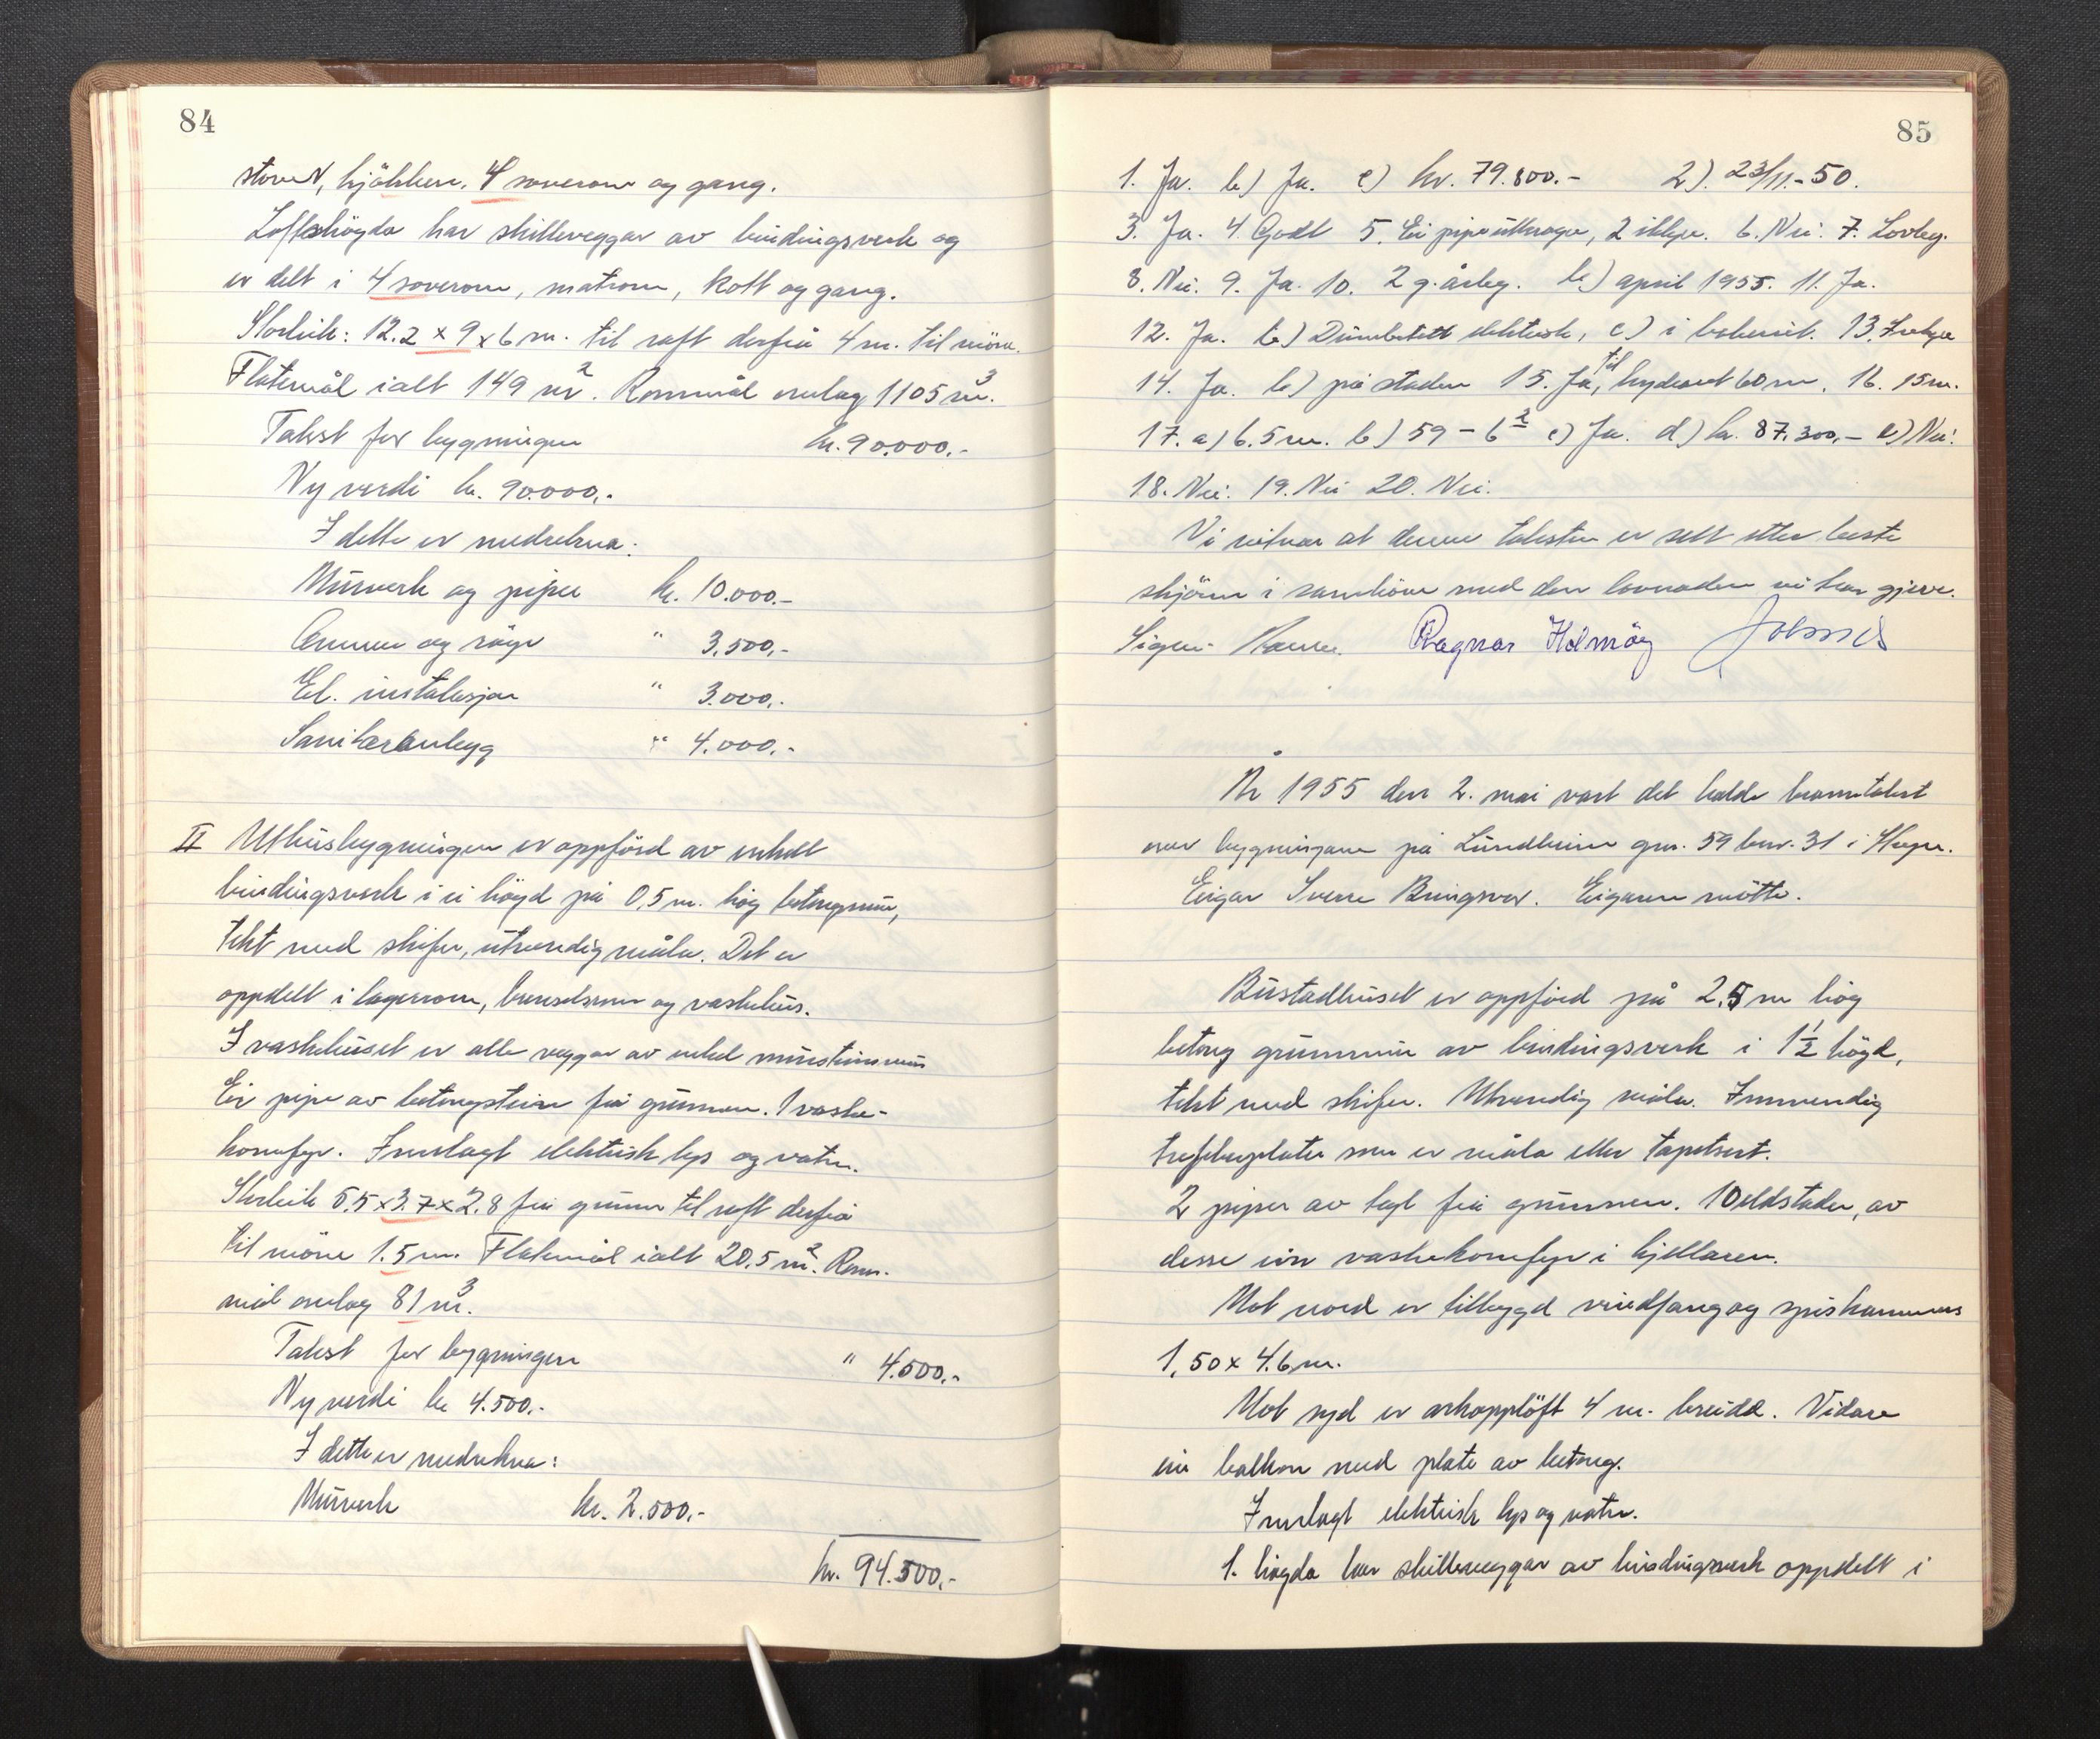 84
stover, kjökken, 4 soverom og gang.
Loftshögda har skilleveggar av bindingsverk og
er delt i 4 soverom, matrom, kott og gang.
Storleik: 12.2 x 9 x 6 m. til raft derfrå 4 m. til möne.
Flatemål ialt 149 m². Rommål omlag 1105 m³.
Takst for bygningen kr. 90.000.-
Ny verdi kr. 90.000.-
I dette er medrekna:
Murverk og piper kr. 10.000.-
Omnar og rör " 3.500,-
El. instalasjon " 3.000,-
Sanitæranlegg " 4.000,-
II Uthusbygningen er oppförd av enkelt
bindingsverk i ei högd på 0,5 m. hög betongmur,
tekt med skifer, utvendig måla. Det er
oppdelt i lagerrom, brenselsrom og vaskehus.
I vaskehuset er alle veggar av enkel mursteinsmur
Ein pipe av betongstein frå grunnen. 1 vaske-
komfyr. Innlagt elektrisk lys og vatn.
Storleik 5.5 x 3.7 x 2.8 frå grunn til raft derfrå
til möne 1.5 m. Flatemål ialt 20.5 m². Rom-
mål omlag 81 m³.
Takst for bygningen " 4.500.-
Ny verdi kr 4.500.-
I dette er medrekna:
Murverk kr. 2.500.-
kr. 94.500.-
85
1. Ja. b) Ja. c) kr. 79.800.- 2). 23/11.-50.
3. Ja. 4. Godt 5. Ei pipe utkraga, 2 ikkje. 6. Nei. 7. Lovleg.
8. Nei. 9. Ja. 10. 2 g. årleg. b.) april 1955. 11. Ja.
12. Ja. b) elektrisk, c) i 13. Ikkje
14. Ja. b) på staden 15. Ja, til hydrant 60 m. 16. 15 m.
17. a) 6.5 m. b) 59 - 6² c) Ja. d) kr. 87.300,- e) Nei.
18. Nei. 19. Nei 20. Nei.
Vi vitnar at denne taksten er sett etter beste
skjönn i samhöve med den lovnaden vi har gjeve.
Ragnar Holmöy
År 1955 den 2. mai vart det halde branntakst
over bygningane på Lundheim gnr. 59 bnr. 31 i
Eigar Sverre Bringsvor. Eigaren mötte.
Bustadhuset er oppförd på 2.5 m hög
betong grunnmur av bindingsverk i 1½ högd,
tekt med skifer. Utvendig måla. Innvendig
trefiberplater som er måla eller tapetsert.
2 piper av tegl frå grunnen. 10 eldstader, av
desse ein vaskekomfyr i kjellaren.
Mot nord er tilbygd vindfang og spiskammers
1,50 x 4.6 m.
Mot syd er arkopplöft 4 m. breidd. Vidare
ein balkon med plate av betong.
Innlagt elektrisk lys og vatn.
1. högda har skilleveggar av bindingsverk oppdelt i